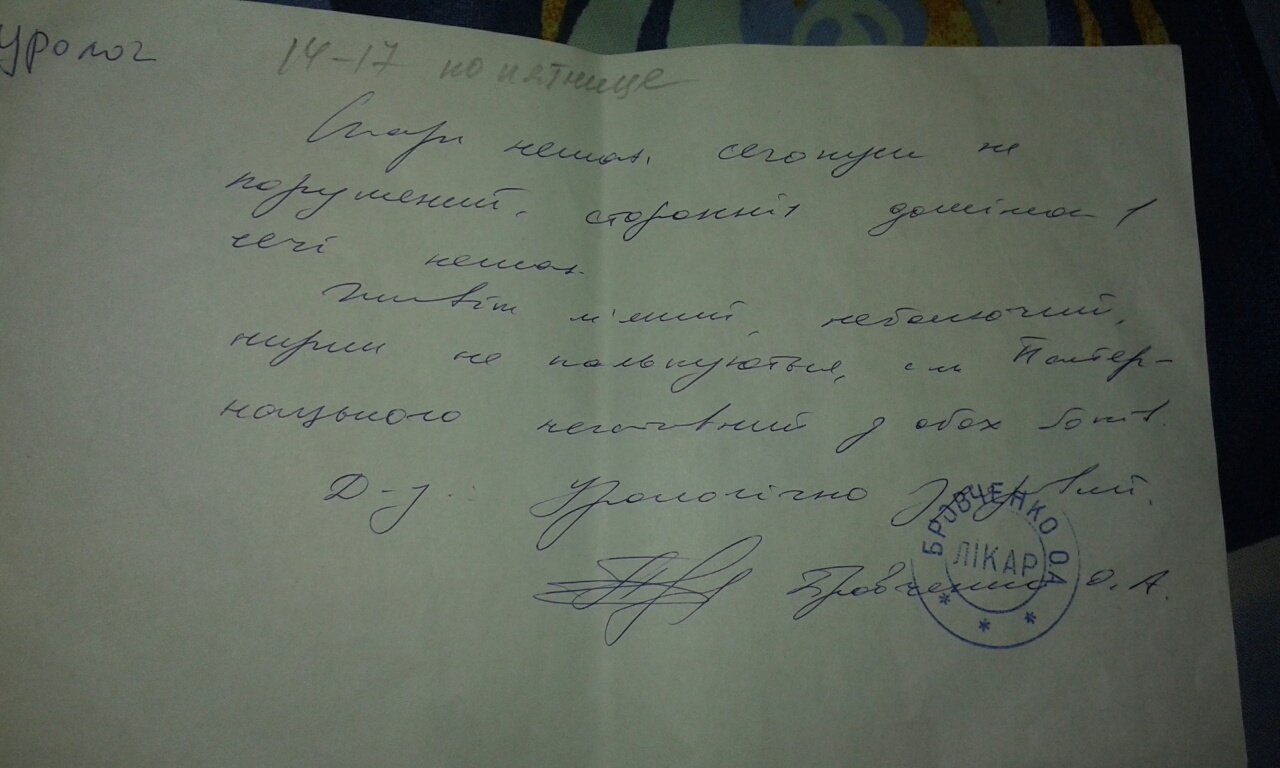 Уролог 14-17 по пятнице
Скарг немає. сечопуск не
порушений. сторонніх домішок в
сечі немає.
Живіт м'який, неболючий,
нирки не пальпуються, с-м Пастер-
нацького негативний з обох боків.
Д-з: Урологічно здоровий.
Бровченко О. А.
БРОВЧЕНКО О.А
ЛІКАР